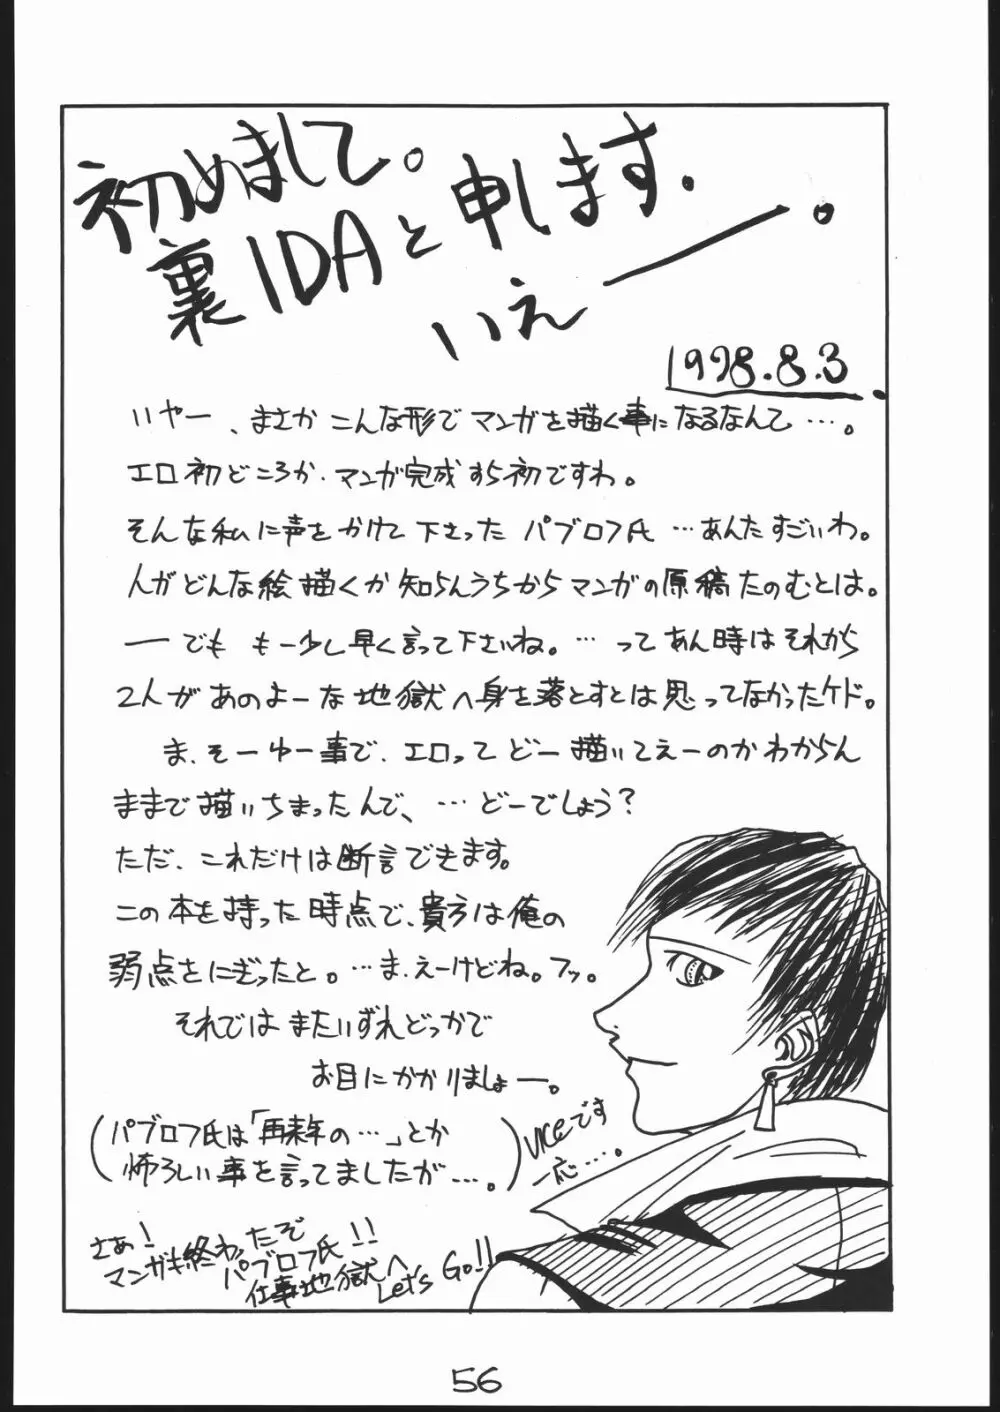 初めまして。
裏IDAと申します.
いえー。
1998.8.3.
いやー、まさかこんな形でマンガを描く事になるなんて…。
エロ初どころか、マンガ完成すら初ですわ。
そんな私に声をかけて下さったパブロフ氏…あんたすごいわ。
人がどんな絵描くか知らんうちからマンガの原稿たのむとは。
ーでももー少し早く言って下さいね。…ってあん時はそれから
2人があのよーな地獄へ身を落とすとは思ってなかったケド。
ま、そーゆー事で、エロってどー描いてえーのかわからん
ままで描いちまったんで、…どーでしょう?
ただ、これだけは断言できます。
この本を持った時点で、貴方は俺の
弱点をにぎったと。…ま、えーけどね。フッ。
それではまたいずれどっかで
お目にかかりましょー。
(パブロフ氏は「再来年の…」とか
怖ろしい事を言ってましたが…。)
VICEです
一応…。
さぁ!
マンガも終わったぞ
パブロフ氏!!
仕事地獄へ
Let's Go!!
56